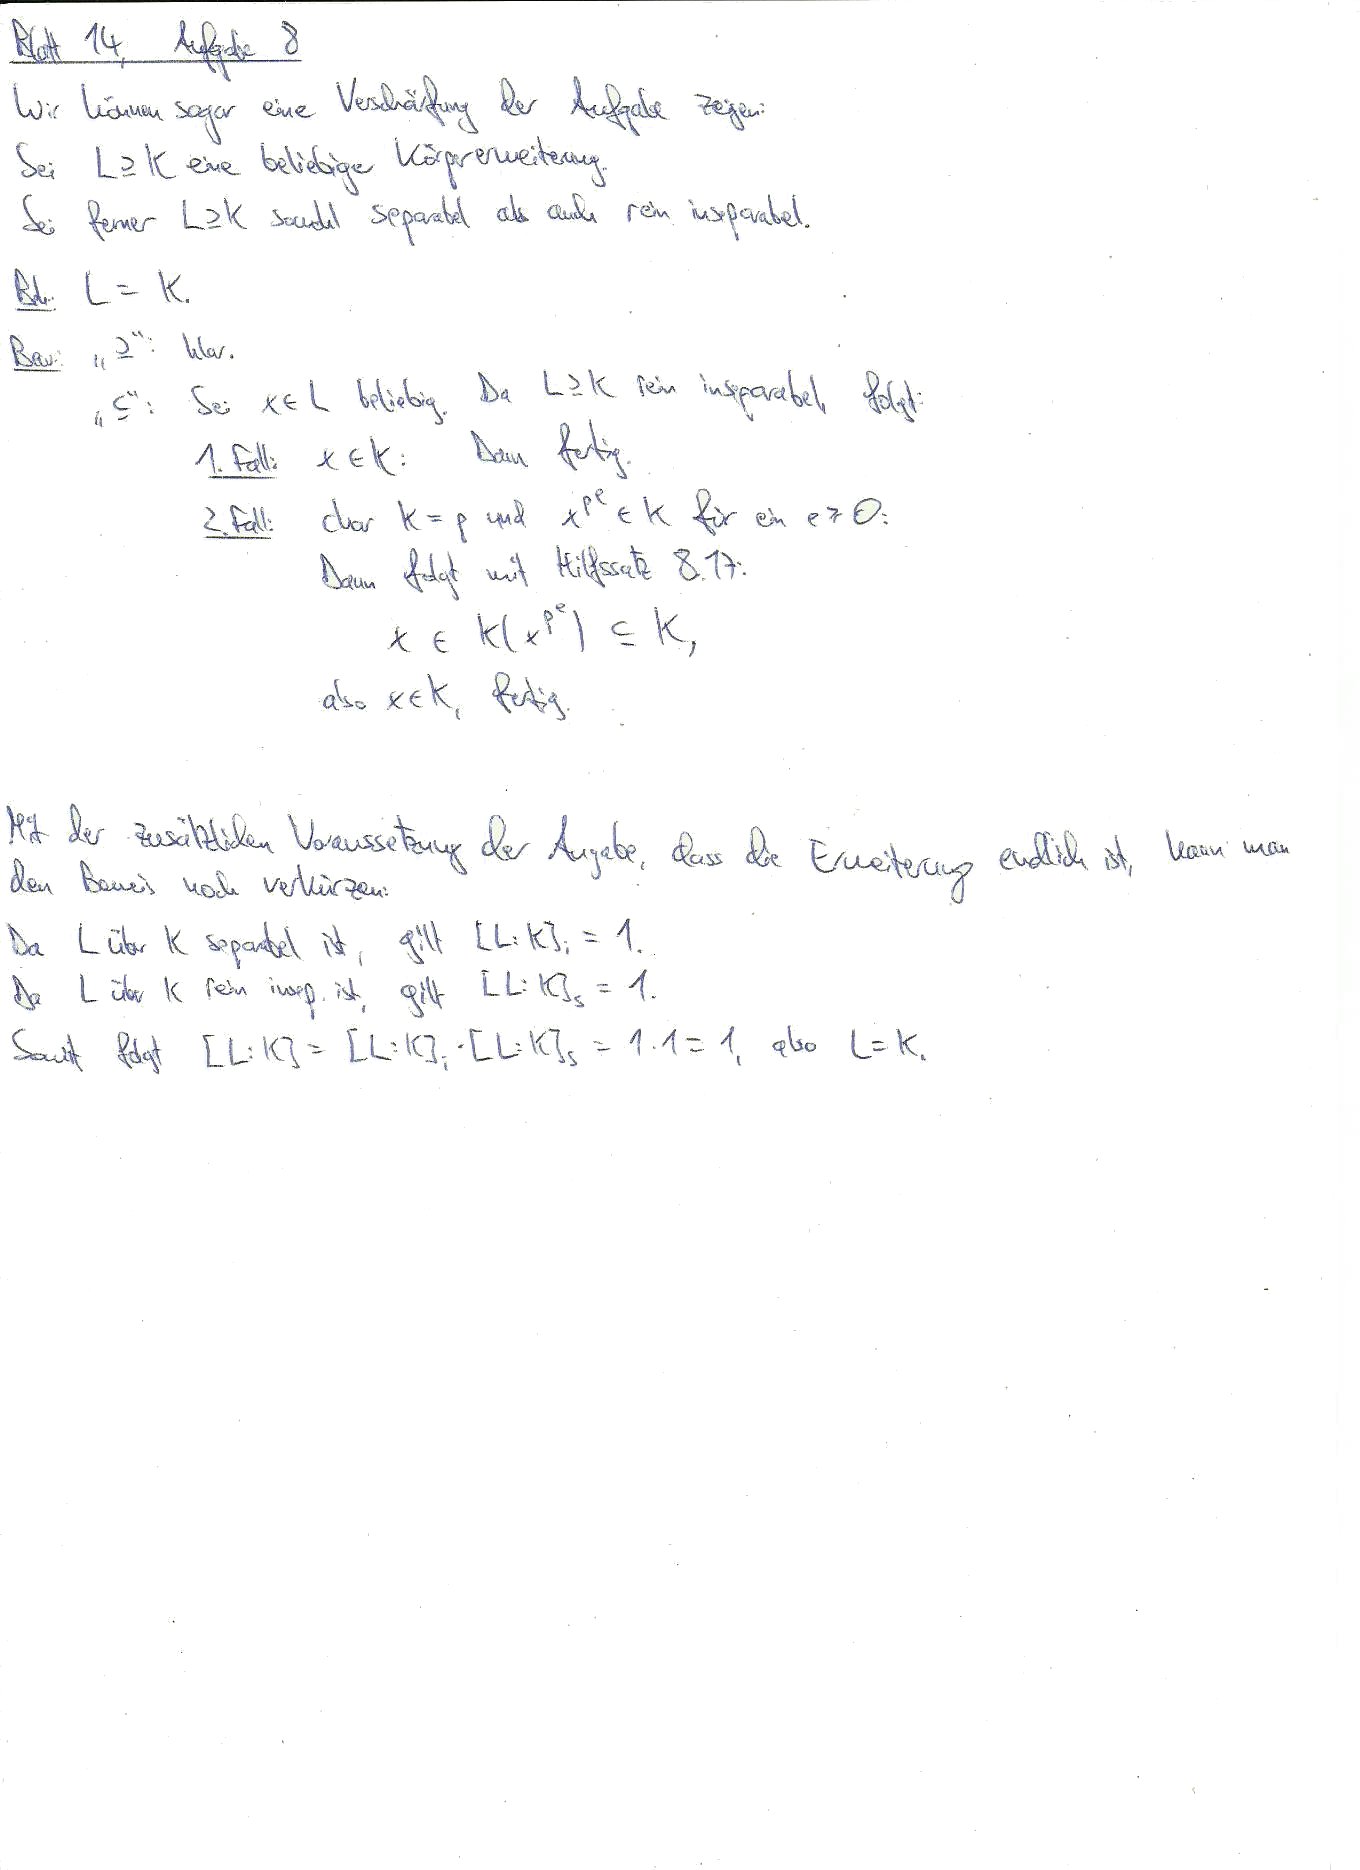 Blatt 14, Aufgabe 8
Wir können sogar eine Verschärfung der Aufgabe zeigen:
Sei L ⊇ K eine beliebige Körpererweiterung.
Sei ferner L ⊇ K sowohl separabel als auch rein inseparabel.
Bh.: L = K.
Bew: „⊇“: klar.
„⊆“: Sei x ∈ L beliebig. Da L ⊇ K rein inseparabel, folgt:
1. Fall: x ∈ K: Dann fertig.
2. Fall: char K = p und x^{p^e} ∈ K für ein e ≥ 0:
Dann folgt mit Hilfssatz 8.17:
x ∈ K(x^{p^e}) ⊆ K,
also x ∈ K, fertig.
Mit der zusätzlichen Voraussetzung der Angabe, dass die Erweiterung endlich ist, kann man
den Beweis noch verkürzen:
Da L über K separabel ist, gilt [L:K]_i = 1.
Da L über K rein insep. ist, gilt [L:K]_s = 1.
Somit folgt [L:K] = [L:K]_i · [L:K]_s = 1·1 = 1, also L = K.